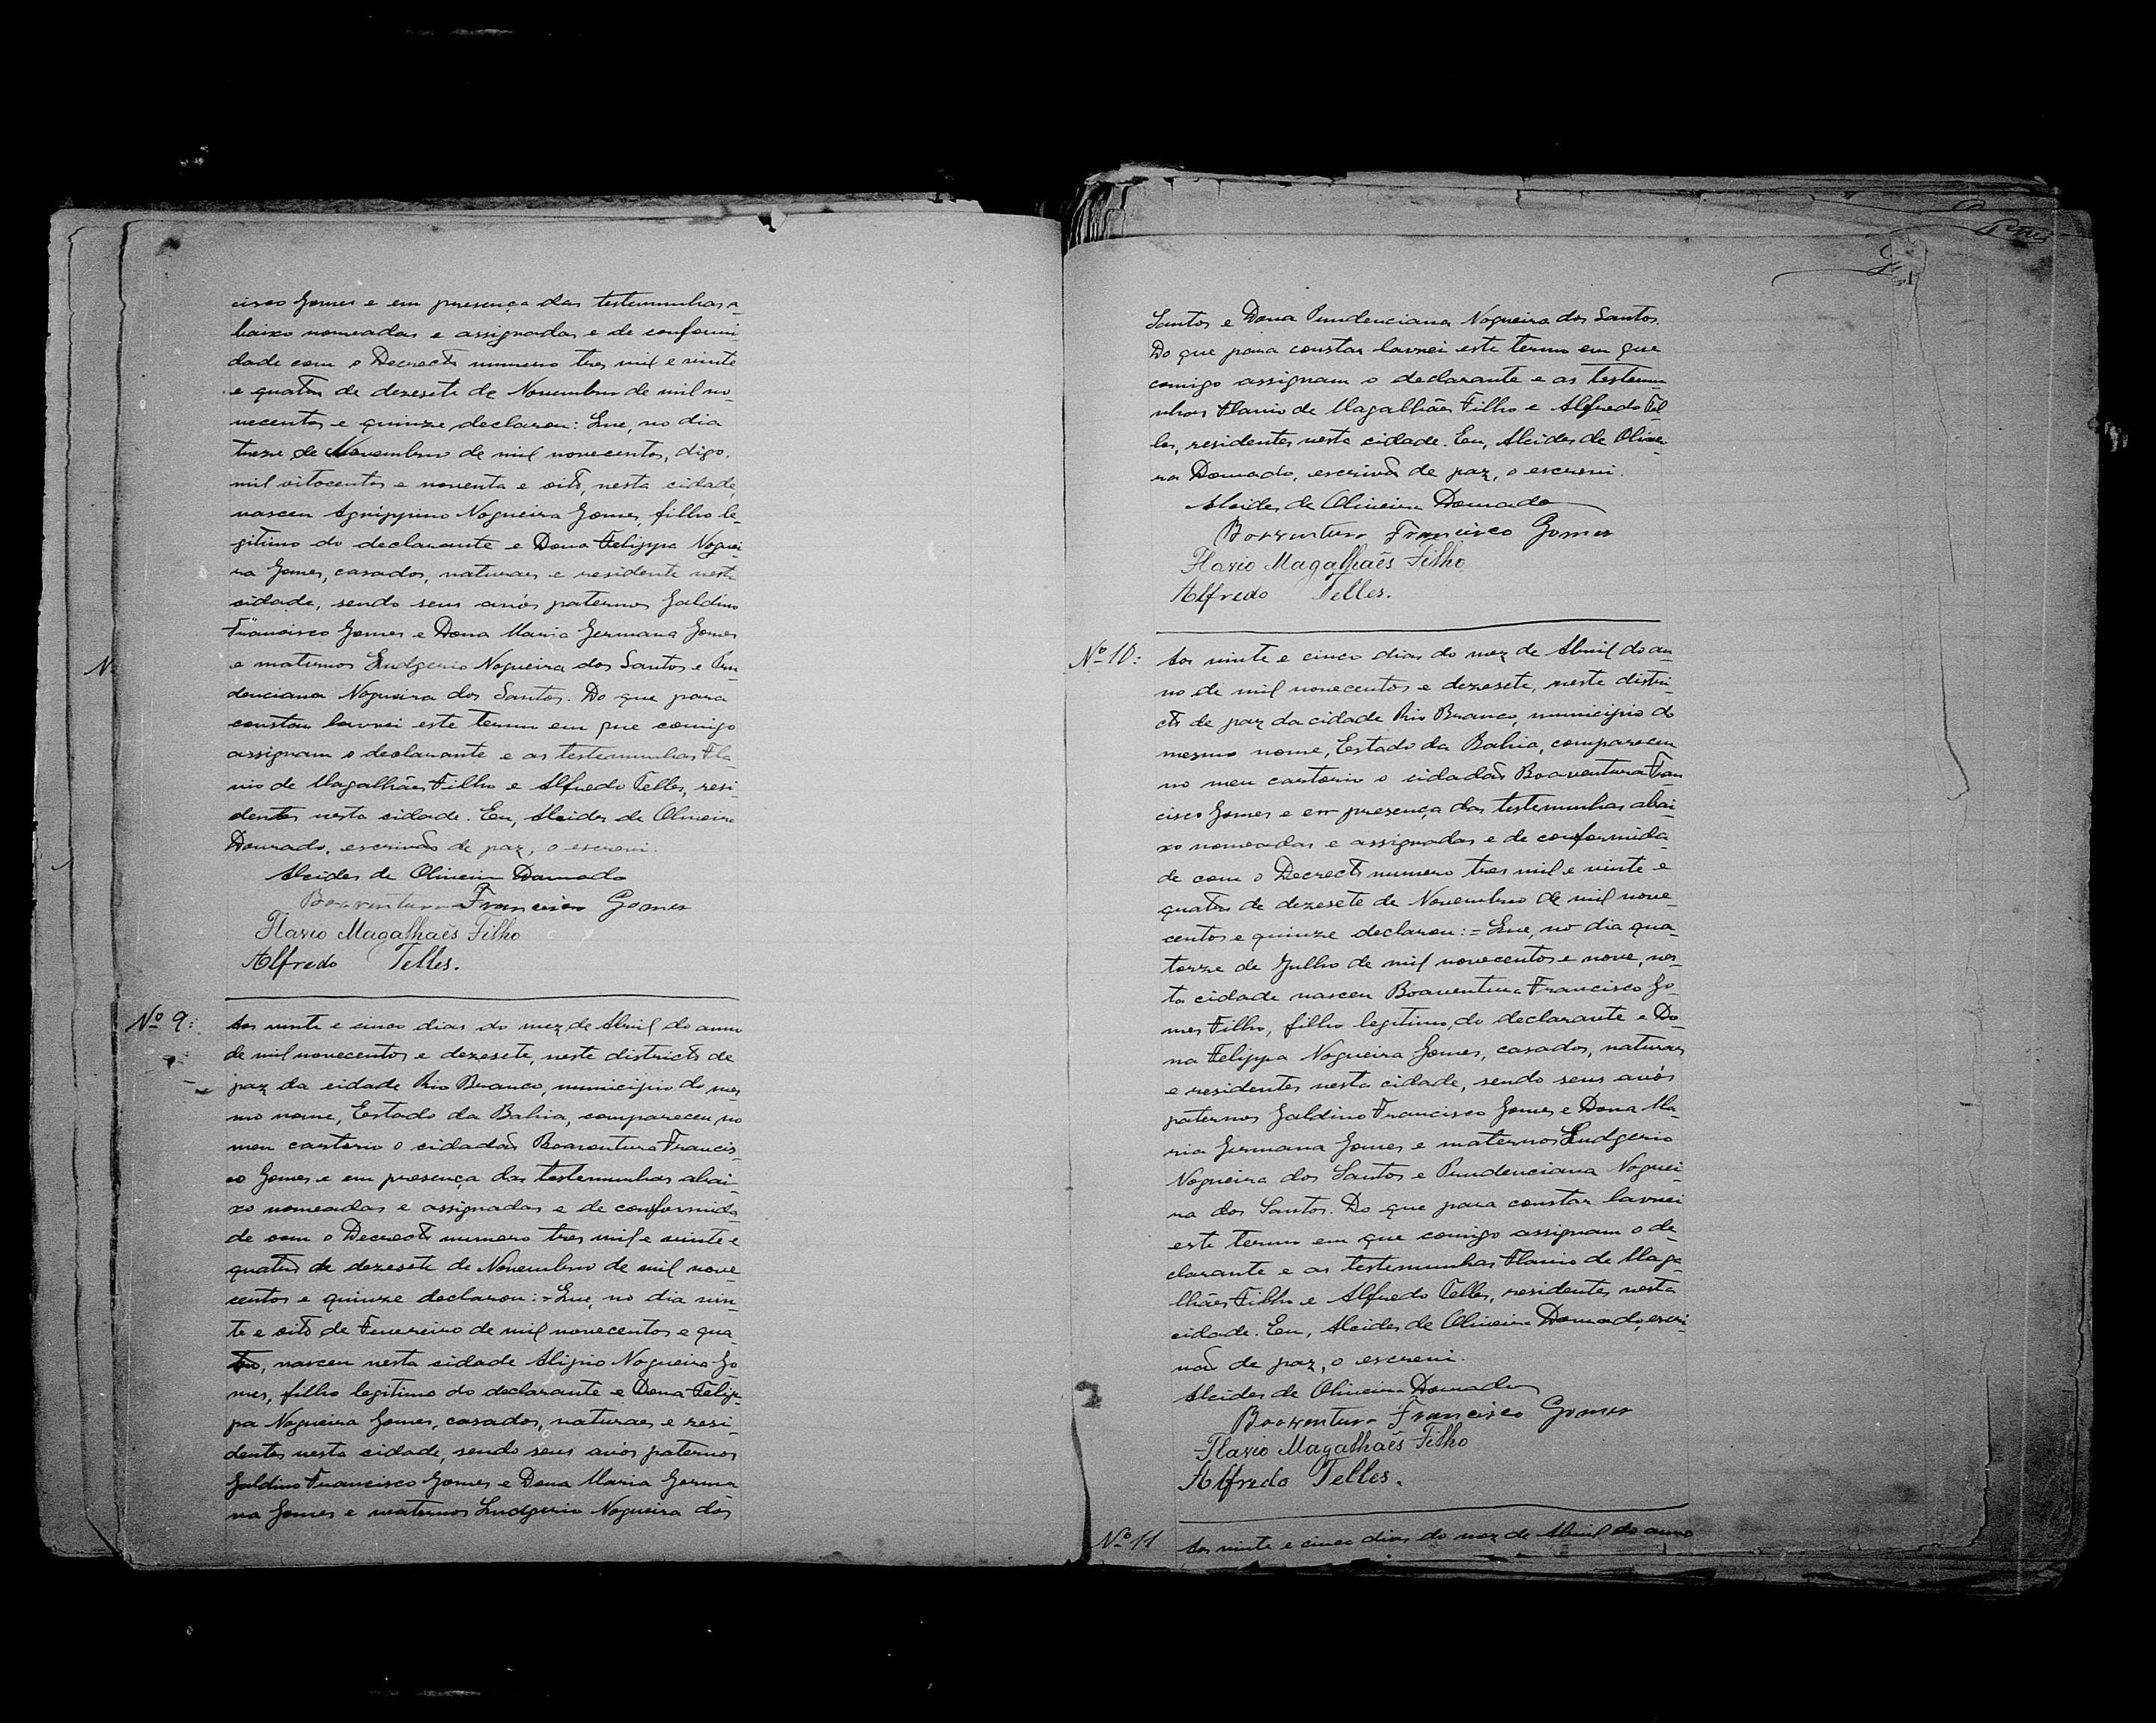 cisco Gomes e em presença das testemunhas a-
baixo nomeadas e assignadas e de conformi-
dade com o Decrecto numero tres mil e vinte
e quatro de dezesete de Novembro de mil no-
vecentos e quinze declarou: Que, no dia
treze de Novembro de mil novecentos, digo,
mil oitocentos e noventa e oito, nesta cidade,
nasceu Agrippino Nogueira Gomes, filho le-
gitimo do declarante e Dona Felippa Noguei-
ra Gomes, casados, naturaes e residente nesta
cidade, sendo seus avós paternos Galdino
Francisco Gomes e Dona Maria Germana Gomes
e maternos Ludgerio Nogueira dos Santos e Pru
denciana Nogueira dos Santos. Do que para
constar lavrei este termo em que comigo
assignam o declarante e as testemunhas Fla-
vio de Magalhães Filho e Alfredo Telles, resi-
dentes nesta cidade. Eu, Alcides de Oliveira
Dourado, escrivão de paz, o escrevi.
Alcides de Oliveira Dourado
Boaventura Francisco Gomes
Flavio Magalhaês Filho
Alfredo Telles.
Nº 9: Aos vinte e cinco dias do mez de Abril do anno
de mil novecentos e dezesete, neste districto de
paz da cidade Rio Branco, municipio do mes-
mo nome, Estado da Bahia, compareceu no
meu cartorio o cidadão Boaventura Francis-
co Gomes e em presença das testemunhas abai-
xo nomeadas e assignadas e de conformida-
de com o Decrecto numero tres mil e vinte e
quatro de dezesete de Novembro de mil nove-
centos e quinze declarou:=Que, no dia vin-
te e oito de Fevereiro de mil novecentos e qua-
tro, nasceu nesta cidade Alipio Nogueira Go-
mes, filho legitimo do declarante e Dona Felip-
pa Nogueira Gomes, casados, naturaes e resi-
dentes nesta cidade, sendo seus avós paternos
Galdino Francisco Gomes e Dona Maria Germa-
na Gomes e maternos Ludgerio Nogueira dos
Santos e Dona Prudenciana Nogueira dos Santos.
Do que para constar lavrei este termo em que
comigo assignam o declarante e as testemu-
nhas Flavio de Magalhães Filho e Alfredo Tel-
les, residentes nesta cidade. Eu, Alcides de Olivei-
ra Dourado, escrivão de paz, o escrevi.
Alcides de Oliveira Dourado
Boaventura Francisco Gomes
Flavio Magalhaês Filho
Alfredo Telles.
Nº 10: Aos vinte e cinco dias do mez de Abril do an-
no de mil novecentos e dezesete, neste distri-
cto de paz da cidade Rio Branco, municipio do
mesmo nome, Estado da Bahia, compareceu
no meu cartorio o cidadão Boaventura Fran
cisco Gomes e em presença das testemunhas abai-
xo nomeadas e assignadas e de conformida-
de com o Decrecto numero tres mil e vinte e
quatro de dezesete de Novembro de mil nove-
centos e quinze declarou:=Que, no dia qua-
torze de Julho de mil novecentos e nove, nes-
ta cidade nasceu Boaventura Francisco Go-
mes Filho, filho legitimo, do declarante e Do-
na Felippa Nogueira Gomes, casados, naturaes
e residentes nesta cidade, sendo seus avós
paternos Galdino Francisco Gomes e Dona Ma-
ria Germana Gomes e maternos Ludgerio
Nogueira dos Santos e Prudenciana Noguei-
ra dos Santos. Do que para constar lavrei
este termo em que comigo assignam o de-
clarante e as testemunhas Flavio de Maga-
lhães Filho e Alfredo Telles, residentes nesta
cidade. Eu, Alcides de Oliveira Dourado, escri-
vão de paz, o escrevi.
Alcides de Oliveira Dourado
Boaventura Francisco Gomes
Flavio Magalhaês Filho
Alfredo Telles.
Nº 11 Aos vinte e cinco dias do mez de Abril do anno